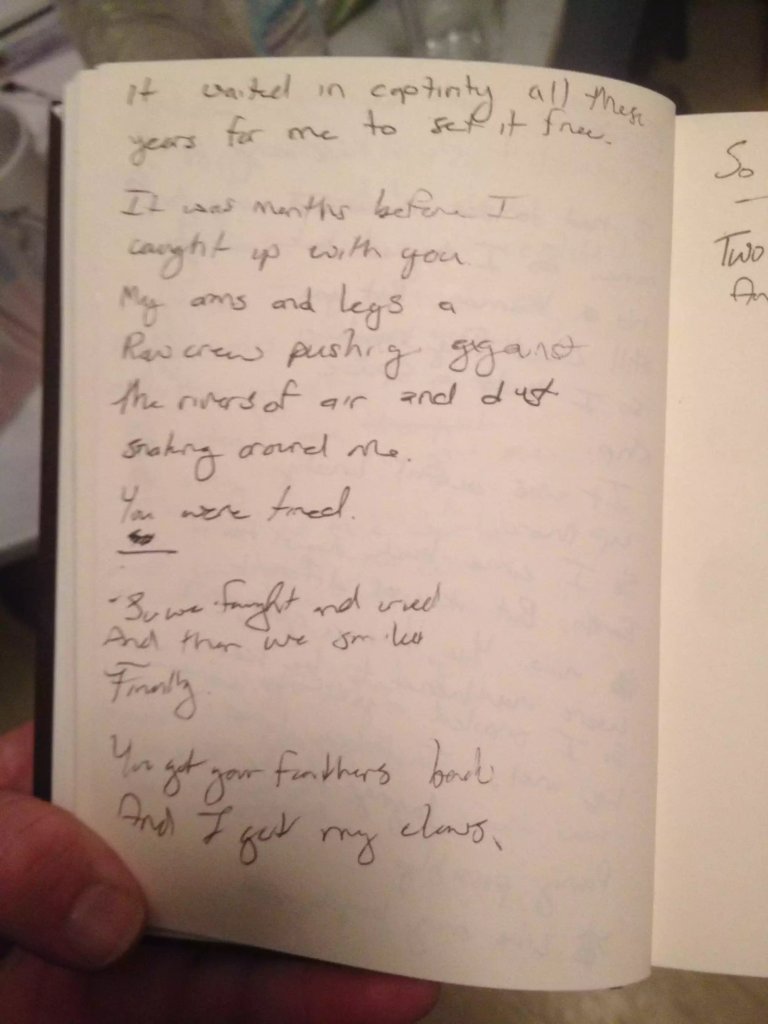 it waited in captivity all these
years for me to set it free.
It was months before I
caught up with you.
My arms and legs a
Row crew pushing against
the rivers of air and dust
snaking around me.
You were tired.
So we fought and cried
And then we smiled
Finally.
You got your feathers back
And I got my claws.
So
Two
An